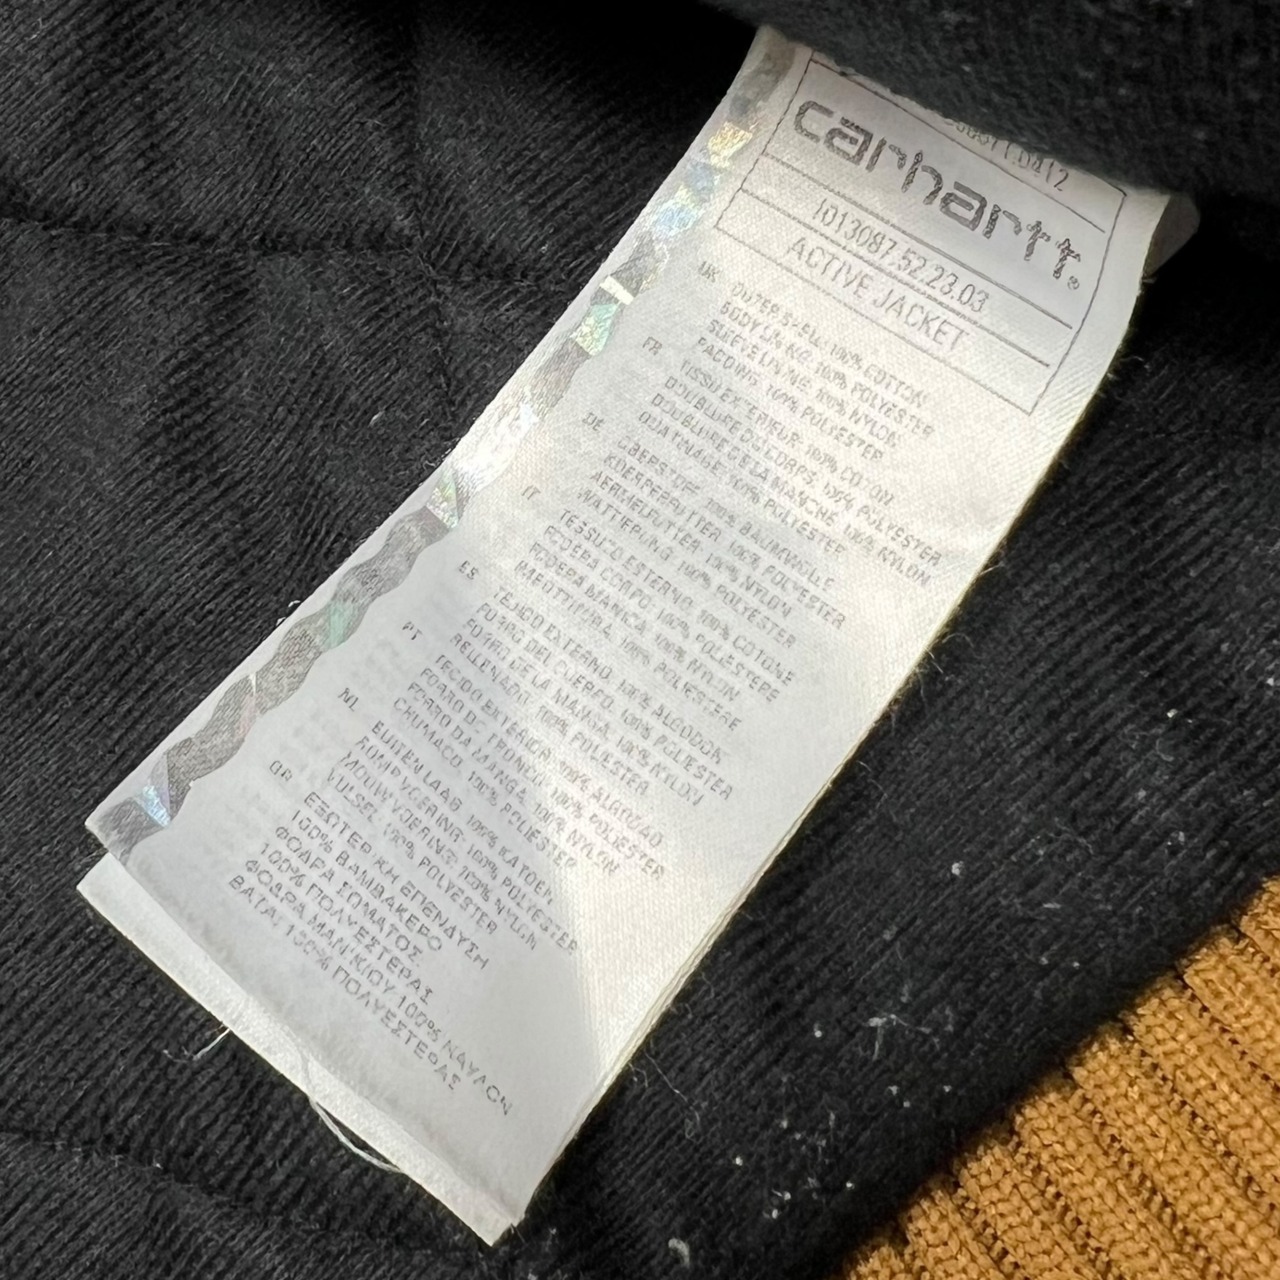 carhartt®
I013087.52.23.03
ACTIVE JACKET
UK OUTER SHELL: 100% COTTON
BODY LINING: 100% POLYESTER
SLEEVE LINING: 100% NYLON
PADDING: 100% POLYESTER
FR TISSU EXTERIEUR: 100% COTON
DOUBLURE DU CORPS: 100% POLYESTER
DOUBLURE DE LA MANCHE: 100% NYLON
OUATINAGE: 100% POLYESTER
DE OBERSTOFF: 100% BAUMWOLLE
KOERPERFUTTER: 100% POLYESTER
AERMELFUTTER: 100% NYLON
WATTIERUNG: 100% POLYESTER
IT TESSUTO ESTERNO: 100% COTONE
FODERA CORPO: 100% POLIESTERE
FODERA MANICA: 100% NYLON
IMBOTTITURA: 100% POLIESTERE
ES TEJIDO EXTERNO: 100% ALGODON
FORRO DEL CUERPO: 100% POLIESTER
FORRO DE LA MANGA: 100% NYLON
RELLENADO: 100% POLIESTER
PT TECIDO EXTERIOR: 100% ALGODAO
FORRO DE TRONCO: 100% POLIESTER
FORRO DA MANGA: 100% NYLON
CHUMACO: 100% POLIESTER
NL BUITENLAAG: 100% KATOEN
ROMPVOERING: 100% POLYESTER
MOUWVOERING: 100% NYLON
VULSEL: 100% POLYESTER
GR ΕΞΩΤΕΡΙΚΗ ΕΠΕΝΔΥΣΗ
100% ΒΑΜΒΑΚΕΡΟ
ΦΟΔΡΑ ΣΩΜΑΤΟΣ
100% ΠΟΛΥΕΣΤΕΡΑΣ
ΦΟΔΡΑ ΜΑΝΙΚΙΟΥ 100% ΝΑΥΛΟΝ
ΒΑΤΑΙ 100% ΠΟΛΥΕΣΤΕΡΑΣ